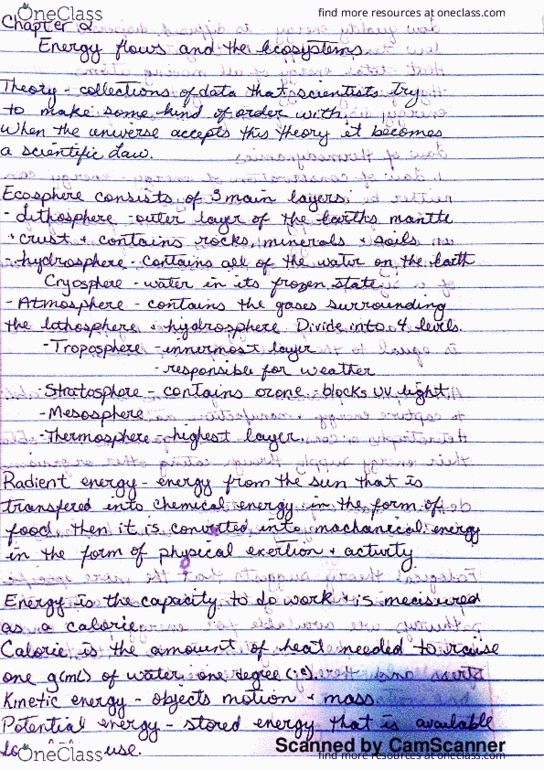 OneClass find more resources at oneclass.com
Chapter 2
Energy flows and the ecosystems
Theory - collections of data that scientists try
to make some kind of order with.
When the universe accepts this theory it becomes
a scientific Law.
Ecosphere consists of 3 main layers:
- Lithosphere - outer layer of the earths mantle
+ crust + contains rocks, minerals + soils
- hydrosphere - contains all of the water on the Earth
Cryosphere - water in its frozen state
- Atmosphere - contains the gases surrounding
the lithosphere + hydrosphere Divide into 4 levels.
- Troposphere - innermost layer
- responsible for weather
- Stratosphere - contains ozone - blocks UV light,
- Mesosphere
- Thermosphere - highest layer.
Radient energy - energy from the sun that is
transfered into chemical energy in the form of
food, then it is converted into machanical energy
in the form of physical exertion + activity
Energy is the capacity to do work + is measured
as a calorie
Calorie is the amount of heat needed to raise
one g(mL) of water one degree
Kinetic energy - objects motion + mass
Potential energy - stored energy that is available
use.
Scanned by CamScanner
OneClass find more resources at oneclass.com